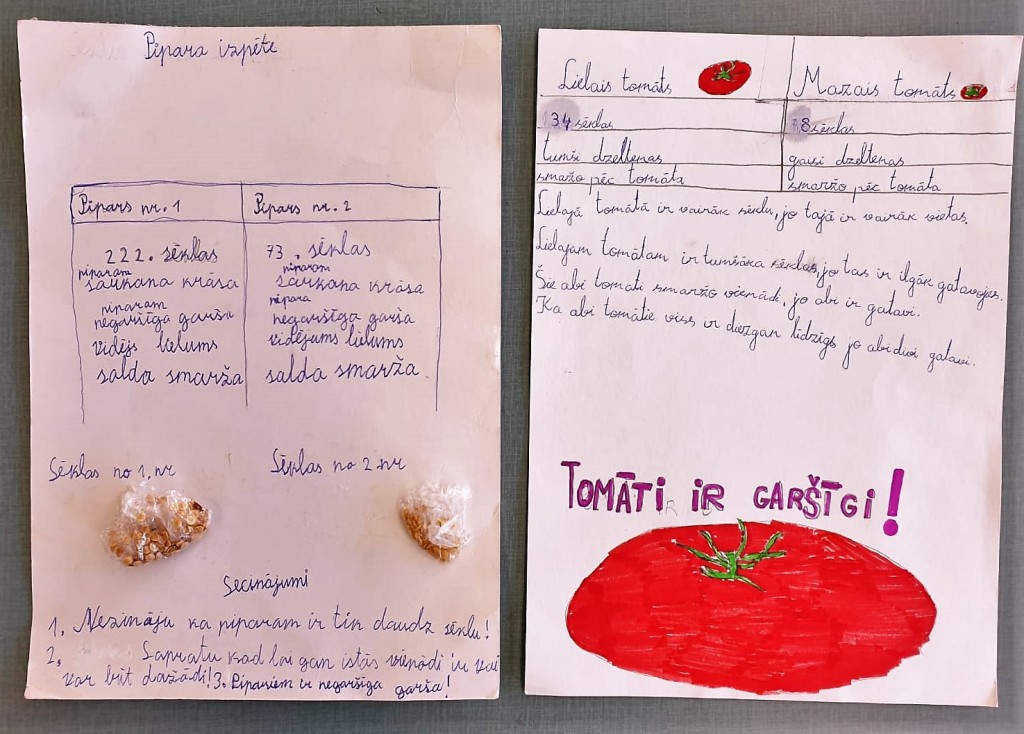 Pipara izpēte
Pipars nr. 1
Pipars nr. 2
222. sēklas
73. sēklas
piparam
sarkana krāsa
piparam
sarkana krāsa
piparam
negaršīga garša
pipara
negaršīga garša
vidējs lielums
vidējums lielums
salda smarža
salda smarža
Sēklas no 1. nr
Sēklas no 2. nr
Secinājumi
1. Nezināju ka piparam ir tik daudz sēklu!
2. Sapratu kad lai gan istās vienādi ir
var būt dažādi! 3. Pipariem ir negaršīga garša!
Lielais tomāts
Mazais tomāts
34 sēklas
8 sēklas
tumši dzeltenas
gaiši dzeltenas
smaržo pēc tomāta
smaržo pēc tomāta
Lielajā tomātā ir vairāk sēklu, jo tajā ir vairāk vietas.
Lielajam tomātam ir tumšāka sēklas, jo tas ir ilgāk gatavojies.
Šie abi tomāti smaržo vienādi, jo abi ir gatavi.
Ka abi tomātie viss ir diezgan līdzīgs jo abi divi gatavi.
TOMĀTI IR GARŠĪGI!